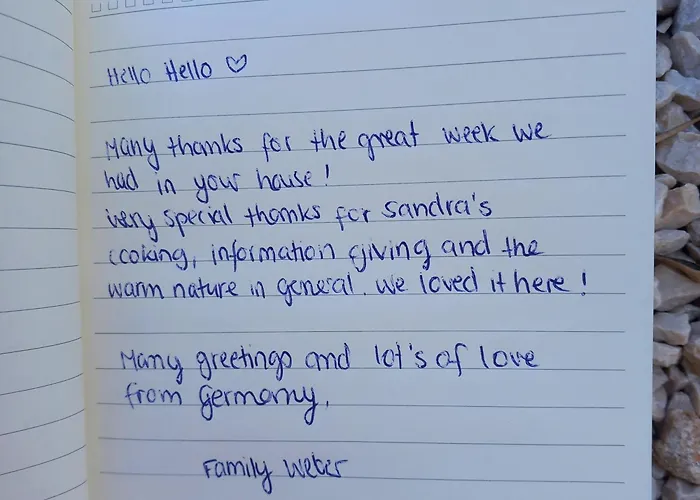 Hello Hello ♡
Many thanks for the great week we
had in your house!
Very special thanks for Sandra's
cooking, information giving and the
warm nature in general. We loved it here!
Many greetings and lot's of love
from Germany,
Family Weber